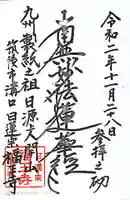 令和二年十一月二十八日
参拝之砌
南無妙法蓮華経
九州製紙之祖日源上人開山
筑後市溝口日蓮宗福王寺